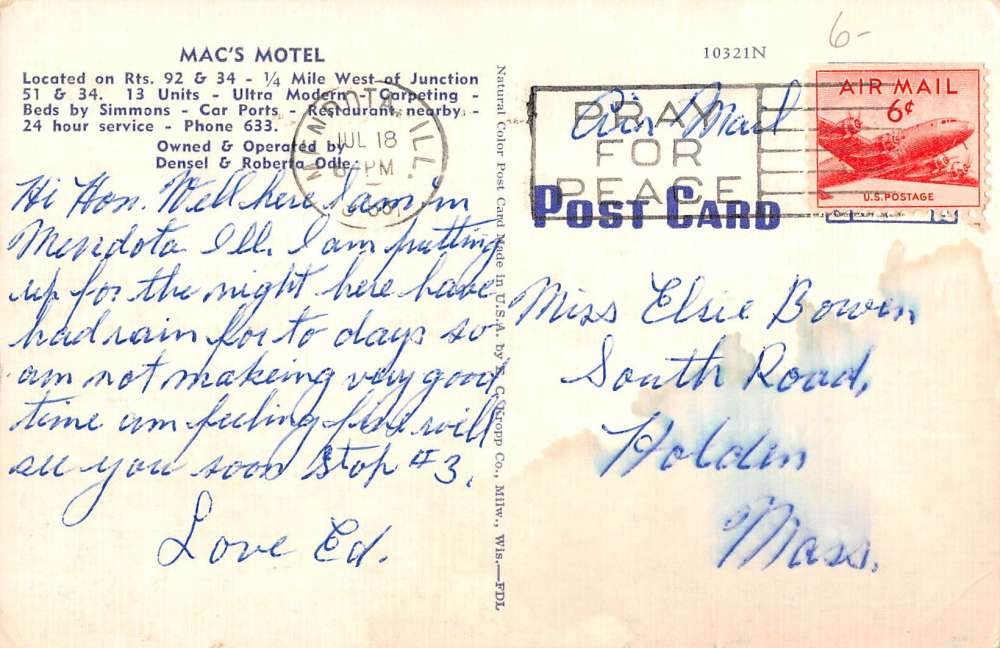 MAC'S MOTEL
Located on Rts. 92 & 34 - 1/4 Mile West of Junction
51 & 34. 13 Units - Ultra Modern - Carpeting -
Beds by Simmons - Car Ports - Restaurant nearby -
24 hour service - Phone 633.
Owned & Operated by
Densel & Roberta Odle.
Hi Hon. Well here I am in
Mendota Ill. I am putting
up for the night here have
had rain for to days so
am not makeing very good
time am feeling fine will
see you soon Stop #3.
Love Ed.
Natural Color Post Card Made in U.S.A. by E. C. Kropp Co., Milw., Wis.—FDL
10321N
6-
MENDOTA ILL.
JUL 18
PM
PRAY
FOR
PEACE
Air Mail
AIR MAIL
6¢
U.S. POSTAGE
POST CARD
Miss Elsie Bowen
South Road,
Holden
Mass.